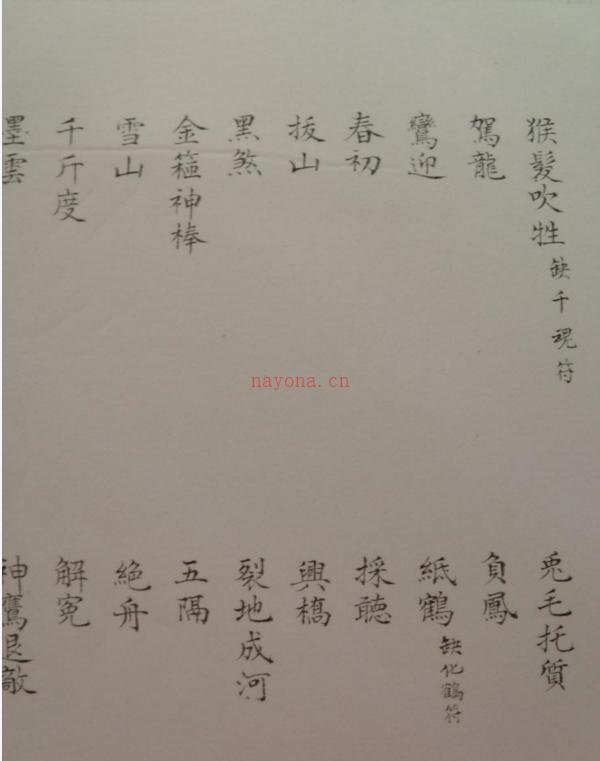 猴髮吹牲 缺千視符
駕龍
鸞迎
春初
拔山
黑煞
金箍神棒
雪山
千斤度
墨雲
兎毛托質
負鳳
紙鶴 缺化鶴符
採聽
興橋
裂地成河
五隔
絕舟
解冤
神鷹退敵
nayona.cn